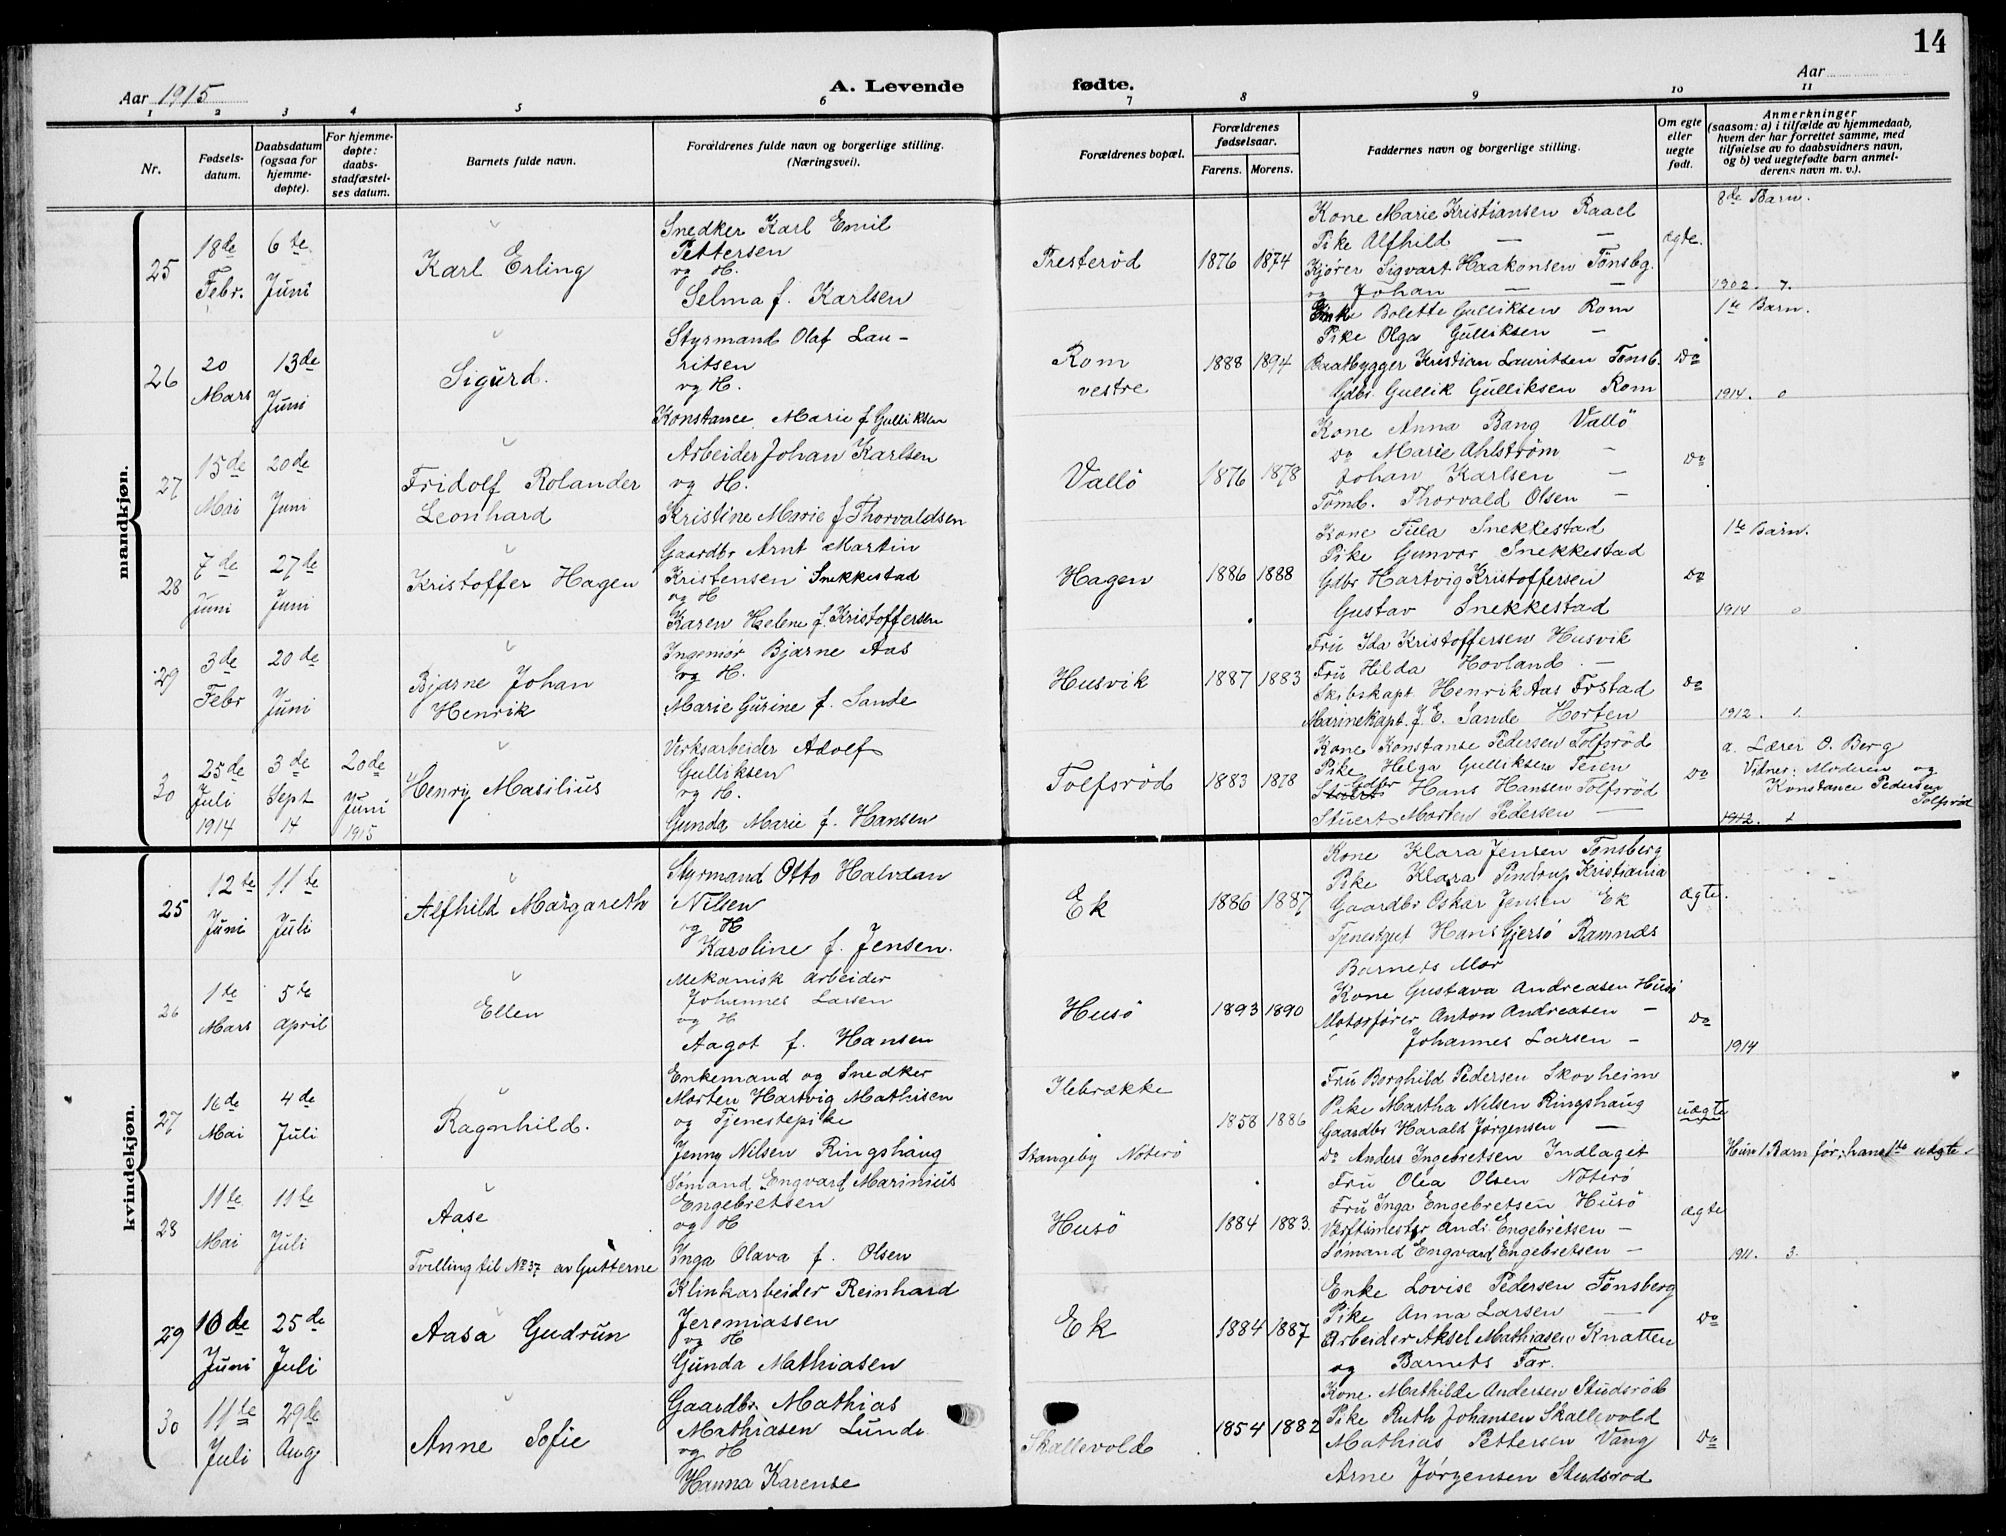 14
Aar 1915
A. Levende
fødte.
Aar
1 2 3 4 5 6 7 8 9 10 11
Nr.
Fødsels-
datum.
Daabsdatum
(ogsaa for
hjemme-
døpte).
For hjemme-
døpte:
daabs-
stadfæstel-
ses datum.
Barnets fulde navn.
Forældrenes fulde navn og borgerlige stilling.
(Næringsvei).
Forældrenes bopæl.
Forældrenes
fødselsaar.
Farens. Morens.
Faddernes navn og borgerlige stilling.
Om egte
eller
uegte
født.
Anmerkninger
(saasom: a) i tilfælde av hjemmedaab,
hvem der har forrettet samme, med
tilføielse av to daabsvidners navn,
og b) ved uegtefødte barn anmel-
derens navn m. v.).
mandkjøn.
25
18de
Febr.
6te
Juni
Karl Erling
Snedker Karl Emil
Pettersen
og H.
Selma f. Karlsen
Presterød
1876 1874
Kone Marie Kristiansen Raael
Pike Alfhild — —
Kjører Sigvart Haakonsen Tønsbg.
og Johan — —
ægte.
8de Barn.
1902. 7.
26
20
Mars
13de
Juni
Sigurd.
Styrmand Olaf Lau-
ritsen
og H.
Konstance Marie f Gulliksen
Rom
vestre
1888 1894
Enke Bolette Gulliksen Rom
Pike Olga Gulliksen —
Baatbygger Kristian Lauritsen Tønsb.
Gdbr. Gullik Gulliksen Rom
Do
1te Barn.
1914. 0
27
15de
Mai
20de
Juni
Fridolf Rolander
Leonhard
Arbeider Johan Karlsen
og H.
Kristine Marie f Thorvaldsen
Vallö
1876 1878
Kone Anna Bang Vallö
Do Marie Ahlström —
Johan Karlsen —
Tömb. Thorvald Olsen —
Do
28
7de
Juni
27de
Juni
Kristoffer Hagen
Gaardbr Arnt Martin
Kristensen Snekkestad
og H
Karen Helene f. Kristoffersen
Hagen
1886 1888
Kone Tilla Snekkestad
Pike Gunvor Snekkestad
Gdbr Hartvig Kristoffersen
Gustav Snekkestad
Do
1te Barn.
1914 0
29
3de
Febr
20de
Juni
Bjarne Johan
Henrik
Ingeniør Bjarne Aas
og H.
Marie Gurine f. Sande
Husvik
1887 1883
Fru Ida Kristoffersen Husvik
Fru Hilda Hovland —
Skibskapt Henrik Aas
Marinekapt. J. E. Sande Horten
Do
1912. 1.
30
25de
Juli
1914
3de
Sept
14
20de
Juni
1915
Henry Masilius
Verksarbeider Adolf
Gulliksen
og H.
Gunda Marie f. Hansen
Tolfsrød
1883 1878
Kone Konstanse Pedersen Tolfsrød
Pike Helga Gulliksen Teien
Gdbr Hans Hansen Tolfsrød
Stuert Morten Pedersen —
Do
a. Lærer O. Berg
Vidner: Moderen og
Konstance Pedersen
Tolfsrød
1912.
kvindekjøn.
25
12te
Juni
11te
Juli
Alfhild Margareth
Styrmand Otto Halvdan
Nilsen
og H
Karoline f. Jensen.
Ek
1886 1887
Kone Klara Jensen Tønsberg
Pike Klara Pindrup Kristiania
Gaardbr Oskar Jensen Ek
Tjenestgut Hans Gjersø Ramnæs
ægte.
26
1te
Mars
5te
april
Ellen
Mekanisk arbeider
Johannes Larsen
og H
Aagot f. Hansen
Husö
1893 1890
Barnets Mor
Kone Gustava Andreasen Husö
Motorfører Anton Andreasen —
Johannes Larsen —
Do
1914
27
16de
Mai
4de
Juli
Ragnhild.
Enkemand og Snedker
Morten Hartvig Mathisen
og Tjenestepike
Jenny Nilsen Ringshaug
Ilebrække
Stangeby Nøterø
1858 1886
Fru Borghild Pedersen Skovheim
Pike Martha Nilsen Ringshaug
Gaardbr Harald Jørgensen —
Do Anders Ingebretsen Indlaget
uægte
Hun 1 Barn før; han 1te uægte
28
11te
Mai
11te
Juli
Aase
Tvilling til No 37 av Gutterne
Sømand Engvard Marinius
Engebretsen
og H
Inga Olava f. Olsen
Husö
1884 1883.
Fru Olea Olsen Nøterø
Fru Inga Engebretsen Husö
Værftsmester Andr. Engebretsen —
Sømand Engvard Engebretsen —
ægte
1911. 3.
29
10de
Juni
25de
Juli
Aasa Gudrun
Klinkarbeider Reinhard
Jeremiassen
og H
Gunda Mathiasen
Ek
1884 1887
Enke Lovise Pedersen Tønsberg
Pike Anna Larsen —
Arbeider Aksel Mathiasen Knatten
og Barnets Far.
Do
30
11te
Juli
29de
Aug
Anne Sofie
Gaardbr Mathias
Mathiasen Lunde
og H
Hanna Karense
Skallevold
1854 1882
Kone Mathilde Andersen Studsrød
Pike Ruth Johansen Skallevold
Mathias Pettersen Vang
Arne Jørgensen Studsrod
Do